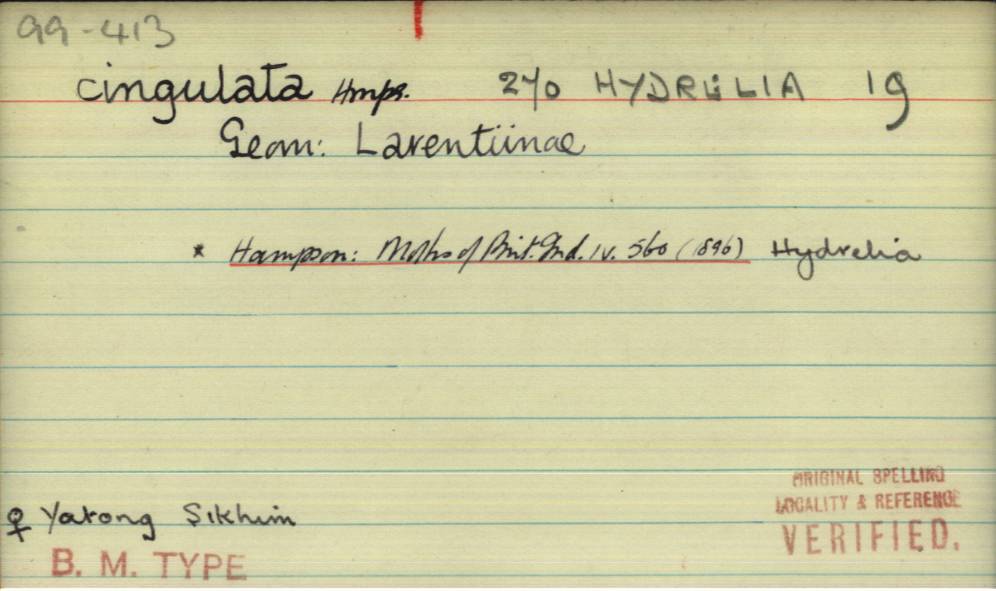 99-413
cingulata Hmps. 270 HYDRELIA 19
Geom: Larentiinae
* Hampson: Moths of Brit. Ind. IV. 560 (1896) Hydrelia
♀ Yatong Sikhim
B. M. TYPE
ORIGINAL SPELLING
LOCALITY & REFERENCE
VERIFIED.